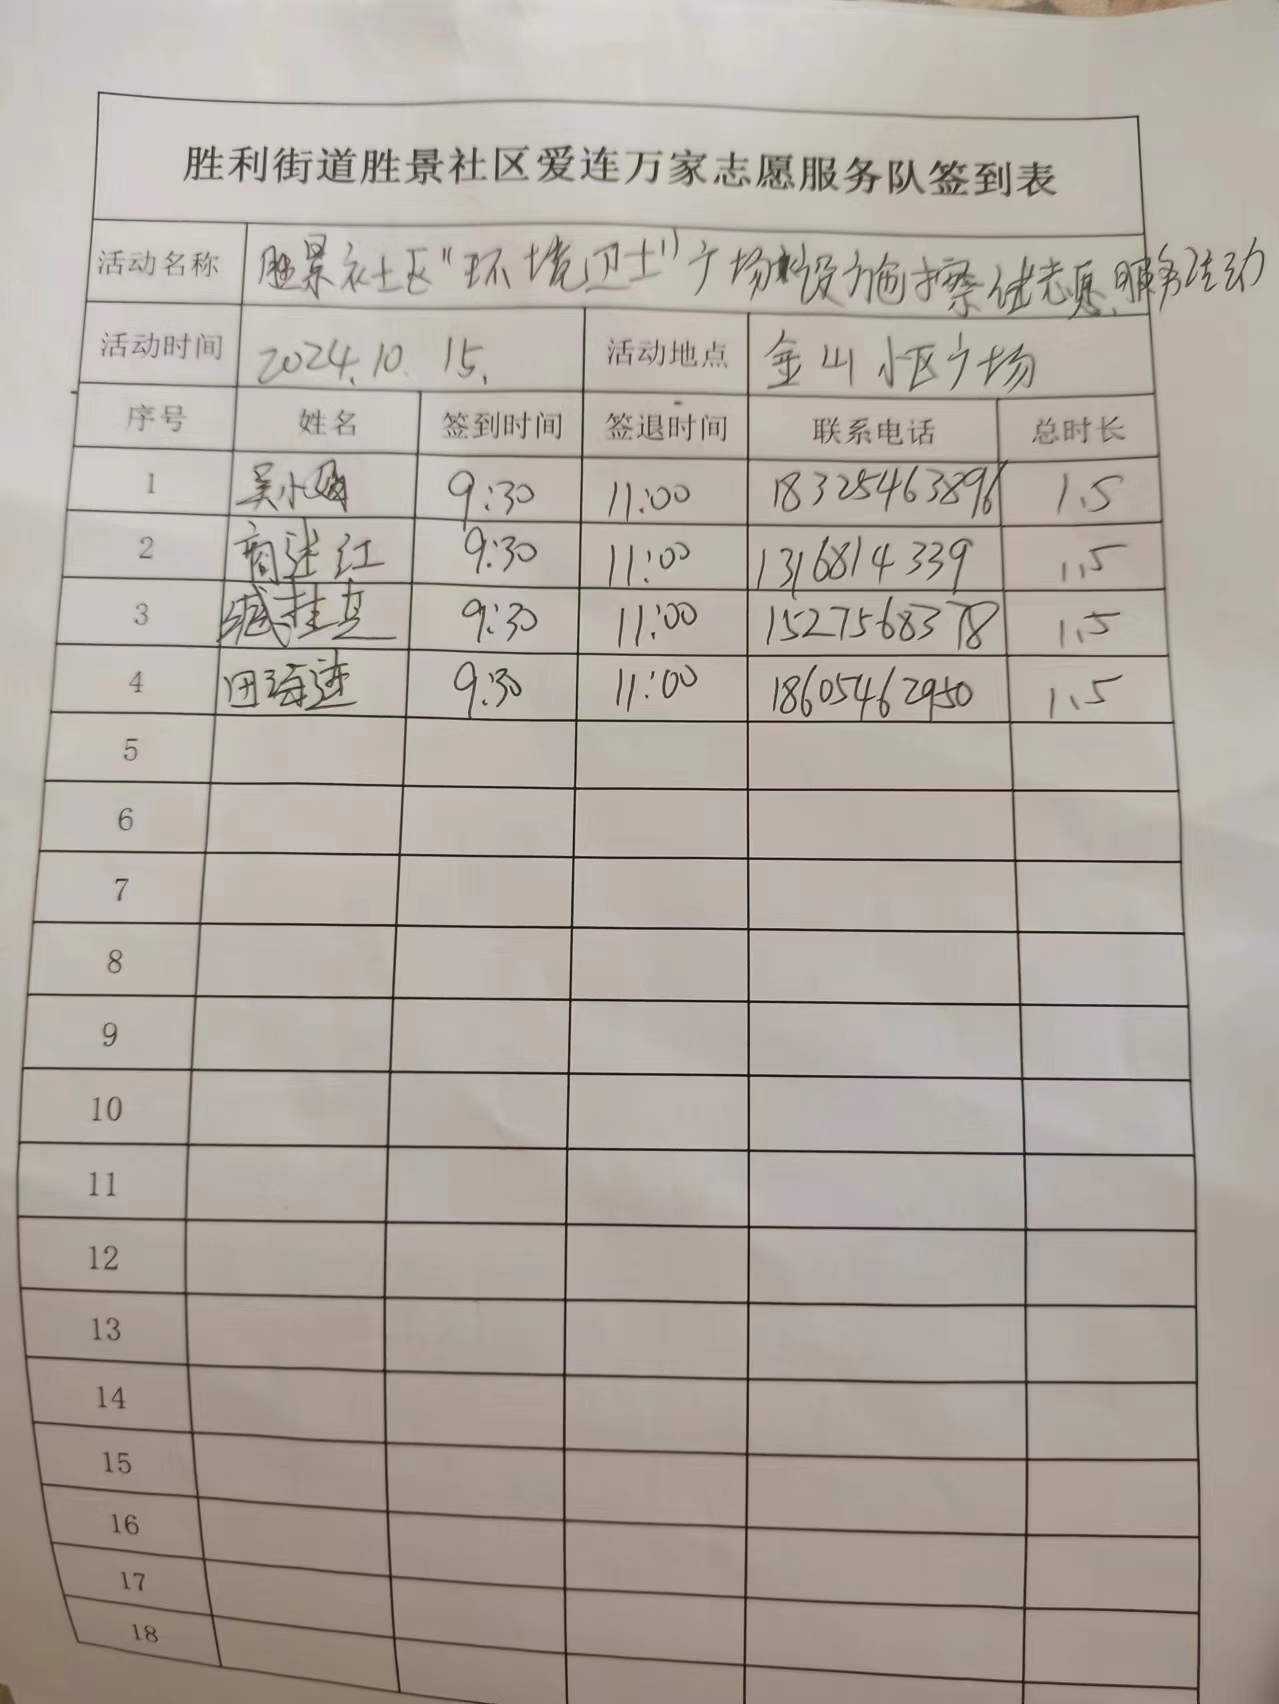 胜利街道胜景社区爱连万家志愿服务队签到表
活动名称 胜景社区"环境卫士"广场设施擦拭志愿服务活动
活动时间 2024.10.15. 活动地点 金山小区广场
序号 姓名 签到时间 签退时间 联系电话 总时长
1 吴小 9:30 11:00 1832546389 1.5
2 商 红 9:30 11:00 1316814339 1.5
3 9:30 11:00 1527568378 1.5
4 田海 9:30 11:00 18605462950 1.5
5
6
7
8
9
10
11
12
13
14
15
16
17
18